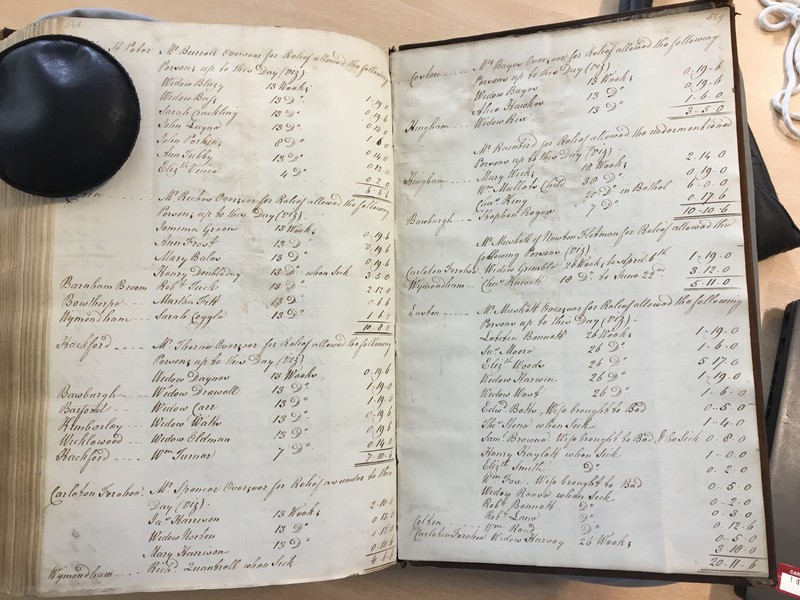 St Peter Mr Burrell Overseer for Relief allowed the following
Persons up to this Day (Viz)
Widow Bluzy 13 Weeks 1. 19. 0
Widow Bass 13 Do 0. 19. 6
Sarah Crackling 13 Do 0. 13. 0
John Layne 13 Do 1 6 0
John Perkins 8 Do 0. 4. 0
Ann Tubby 13 Do
Elizth Vince 4 Do 0. 2. 0
Mr Reeches Overseer for Relief allowed the following
Persons up to this Day (Viz)
Jemima Green 13 Weeks 0. 19. 6
Ann Frost 13 Do 0. 19. 6
Mary Bales 13 Do 0. 19. 6
Henry Doubleday 13 Do when Sick 3. 5. 0
Barnham Broom Robt Tuck 13 Do 2. 12. 0
Bowthorpe Martha Fitt 13 Do 0. 6. 6
Wymondham Sarah Coggle 13 Do 1. 6.
10. 8. 0
Hackford Mr Thorne Overseer for Relief allowed the following
Persons up to this Day (Viz)
Widow Daynes 13 Weeks 0. 19. 6
Bawburgh Widow Drewell 13 Do 1. 19. 0
Barford Widow Carr 13 Do 1. 19. 0
Kimberley Widow Wake 13 Do 0. 19. 6
Wicklewood Widow Oldman 13 Do 0. 19. 6
Hackford Wm Turner 7 Do 0. 14. 0
7. 10. 6
Carleton Forehoe Mr Spencer Overseer for Relief as under to this
Day (Viz)
Jas Harrison 13 Weeks 2. 10. 0
Widow Norton 13 Do 0. 13. 0
Mary Harrison 13 Do
Wymondham Richd Quantrell when Sick
569
Coston Mrs Bayes Overseer for Relief allowed the following
Persons up to this Day (Viz)
Widow Bayes 13 Weeks 0. 19. 6
Alice Hawkes 13 Do 0. 19. 6
Hingham Widow Rix 13 Do 1. 6. 0
3. 5. 0
Mr Rainbird for Relief allowed the undermentioned
Persons up to this Day (Viz)
Hingham Mary Wick 18 Weeks 2. 14. 0
Wm Mallows Child 38 Do 0. 19. 0
Chas Ring 20 Do in Bethel 6. 0. 0
Bawburgh Stephen Rogers 7 Do 0. 17. 6
10. 10. 6
Mr Muskett of Newton Flotman for Relief allowed the
following Persons (Viz)
Carleton Forehoe Widow Grimble 26 Weeks to April 6th 1. 19. 0
Wymondham Chas Knivett 18 Do to June 22nd 3. 12. 0
5. 11. 0
Easton Mr Muskett Overseer for Relief allowed the following
Persons up to this Day (Viz)
Bennett 26 Weeks 1. 19. 0
Jas Moore 26 Do 1. 6. 0
Elizth Woods 26 Do 5 17. 0
Widow Harwin 26 Do 1. 19. 0
Widow West 26 Do 1. 6. 0
Edwd Betts, Wife brought to Bed 0. 5. 0
Thos Steno when Sick 1. 4. 0
Saml Browne Wife brought to Bed, & when Sick 0. 8. 0
Henry Haylett when Sick 1. 0. 0
Elizth Smith Do 0. 2. 0
Wm Fox Wife brought to Bed 0. 5. 0
Widow Reeve when Sick 0. 2. 0
Robt Bennett Do 0. 3. 0
Robt Lane Do 0. 12. 6
Colton Wm Read Do 0. 5. 0
Carleton Forehoe Widow Harvey 26 Weeks 3. 18. 0
20. 11. 6